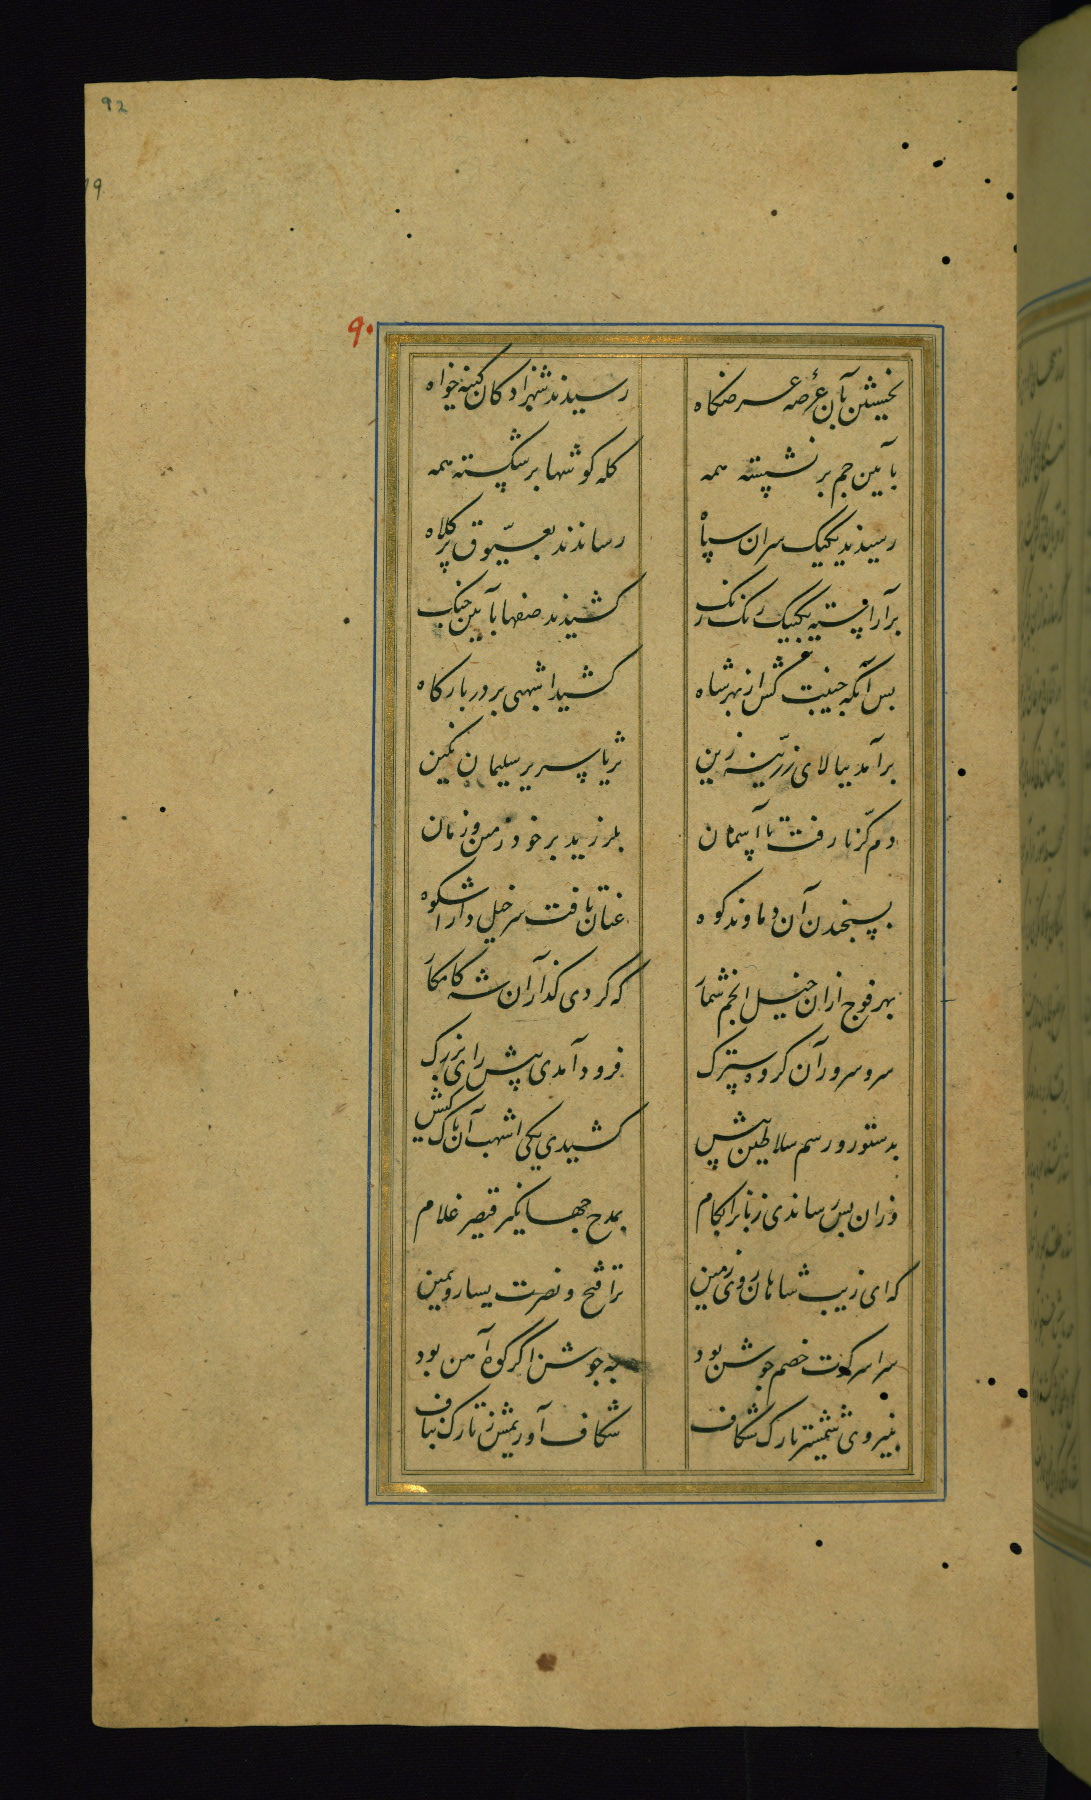 92
۹۰
نخستین بآن عرصه عرضگاه رسیدند شهزادگان کینه خواه
بآیین جم بر نشسته همه کله گوشها برشکسته همه
رسیدند یک یک سران سپاه رساندند بعیّوق پر کلاه
بر آراسته یک یک رنگ رنگ کشیدند صفها بآیین جنگ
پس آنگه جنیبت کش از بهر شاه کشید اشهبی بر در بارگاه
برآمد ببالای زرّینه زین ثریا سریر سلیمان نگین
دم کرّنا رفت تا آسمان بلرزید بر خود زمین و زمان
بسنجیدن آن دماوند کوه عنان تافت سرخیل دارا شکوه
بهر فوج ازان خیل انجم شمار که کردی گذار آن شه کامکار
سر و سرور آن گروه سترک فرود آمدی پیش رای بزرگ
بدستور و رسم سلاطین پیش کشیدی یکی اشهب آن پاک کیش
وزان پس رساندی زبانرا بکام بمدح جهانگیر قیصر غلام
که ای زیب شاهان روی زمین ترا فتح و نصرت یسار و یمین
سراسر گرت خصم جوشن بود به جوشن اگر کوه آهن بود
بنیروی شمشیر تارک شکاف شکاف آوریمش ز تارک بناف